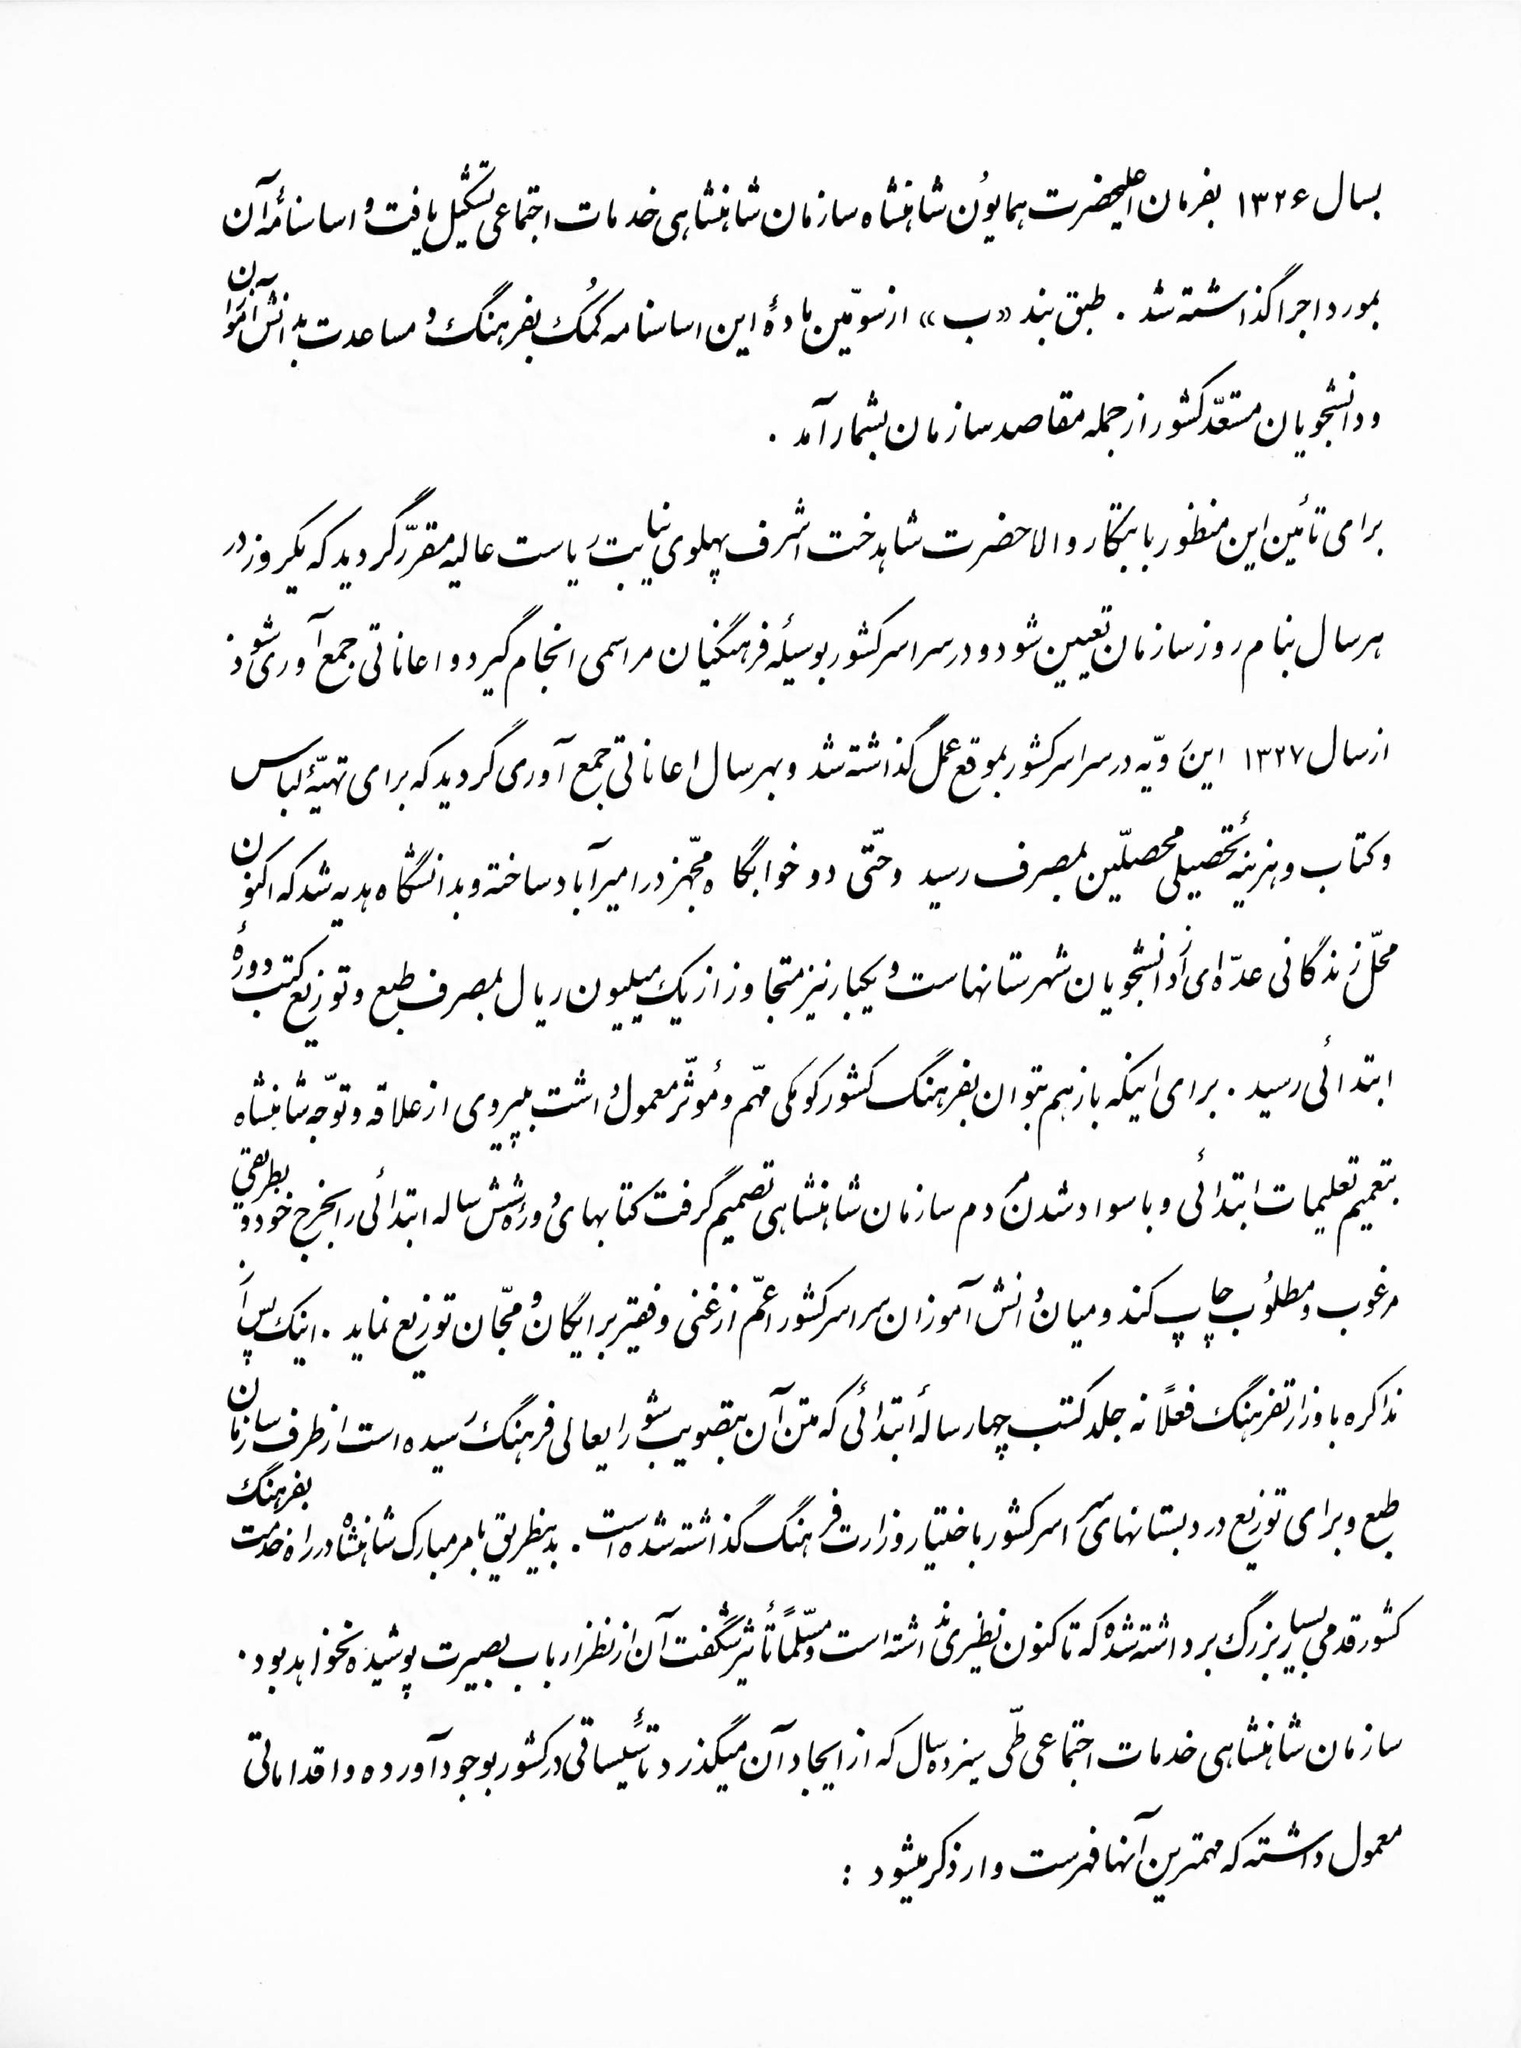 بسال ۱۳۲۶ بفرمان اعلیحضرت همایون شاهنشاه سازمان شاهنشاهی خدمات اجتماعی تشکیل یافت و اساسنامهٔ آن
بمورد اجرا گذاشته شد . طبق بند «ب» از سوّمین مادهٔ این اساسنامه کمک بفرهنگ و مساعدت بدانش‌آموزان
و دانشجویان مستعدّ کشور از جمله مقاصد سازمان بشمار آمد .
برای تأمین این منظور بابتکار والاحضرت شاهدخت اشرف پهلوی نیابت ریاست عالیه مقرّر گردید که یکروز در
هر سال بنام روز سازمان تعیین شود و در سراسر کشور بوسیلهٔ فرهنگیان مراسمی انجام گیرد و اعاناتی جمع آوری شود
از سال ۱۳۲۷ این رویّه در سراسر کشور بموقع عمل گذاشته شد و بهر سال اعاناتی جمع آوری گردید که برای تهیّهٔ لباس
و کتاب و هزینهٔ تحصیلی محصلّین بمصرف رسید و حتّی دو خوابگاه مجّهز در امیرآباد ساخته و بدانشگاه هدیه شد که اکنون
محلّ زندگانی عدّه‌ای از دانشجویان شهرستانهاست و یکبار نیز متجاوز از یک میلیون ریال بمصرف طبع و توزیع کتب دورهٔ
ابتدائی رسید . برای اینکه باز هم بتوان بفرهنگ کشور کومکی مهّم و مؤثّر معمول داشت بپیروی از علاقه و توجّه شاهنشاه
بتعمیم تعلیمات ابتدائی و باسواد شدن مردم سازمان شاهنشاهی تصمیم گرفت کتابهای دورهٔ شش ساله ابتدائی را بخرج خود و بطریقی
مرغوب و مطلوب چاپ کند و میان دانش آموزان سراسر کشور اعمّ از غنی و فقیر برایگان و مجّان توزیع نماید . اینک پس از
مذاکره با وزارتفرهنگ فعلاً نه جلد کتب چهار سالهٔ ابتدائی که متن آن بتصویب شورایعالی فرهنگ رسیده است از طرف سازمان
طبع و برای توزیع در دبستانهای سراسر کشور باختیار وزارت فرهنگ گذاشته شده است . بدینطریق بامر مبارک شاهنشاه در راه خدمت بفرهنگ
کشور قدمی بسیار بزرگ برداشته شده که تاکنون نظیری نداشته است و مسّلماً تأثیر شگفت آن از نظر ارباب بصیرت پوشیده نخواهد بود .
سازمان شاهنشاهی خدمات اجتماعی طّی سیزده سال که از ایجاد آن میگذرد تأسیساتی در کشور بوجود آورده و اقداماتی
معمول داشته که مهمترین آنها فهرست وار ذکر میشود :